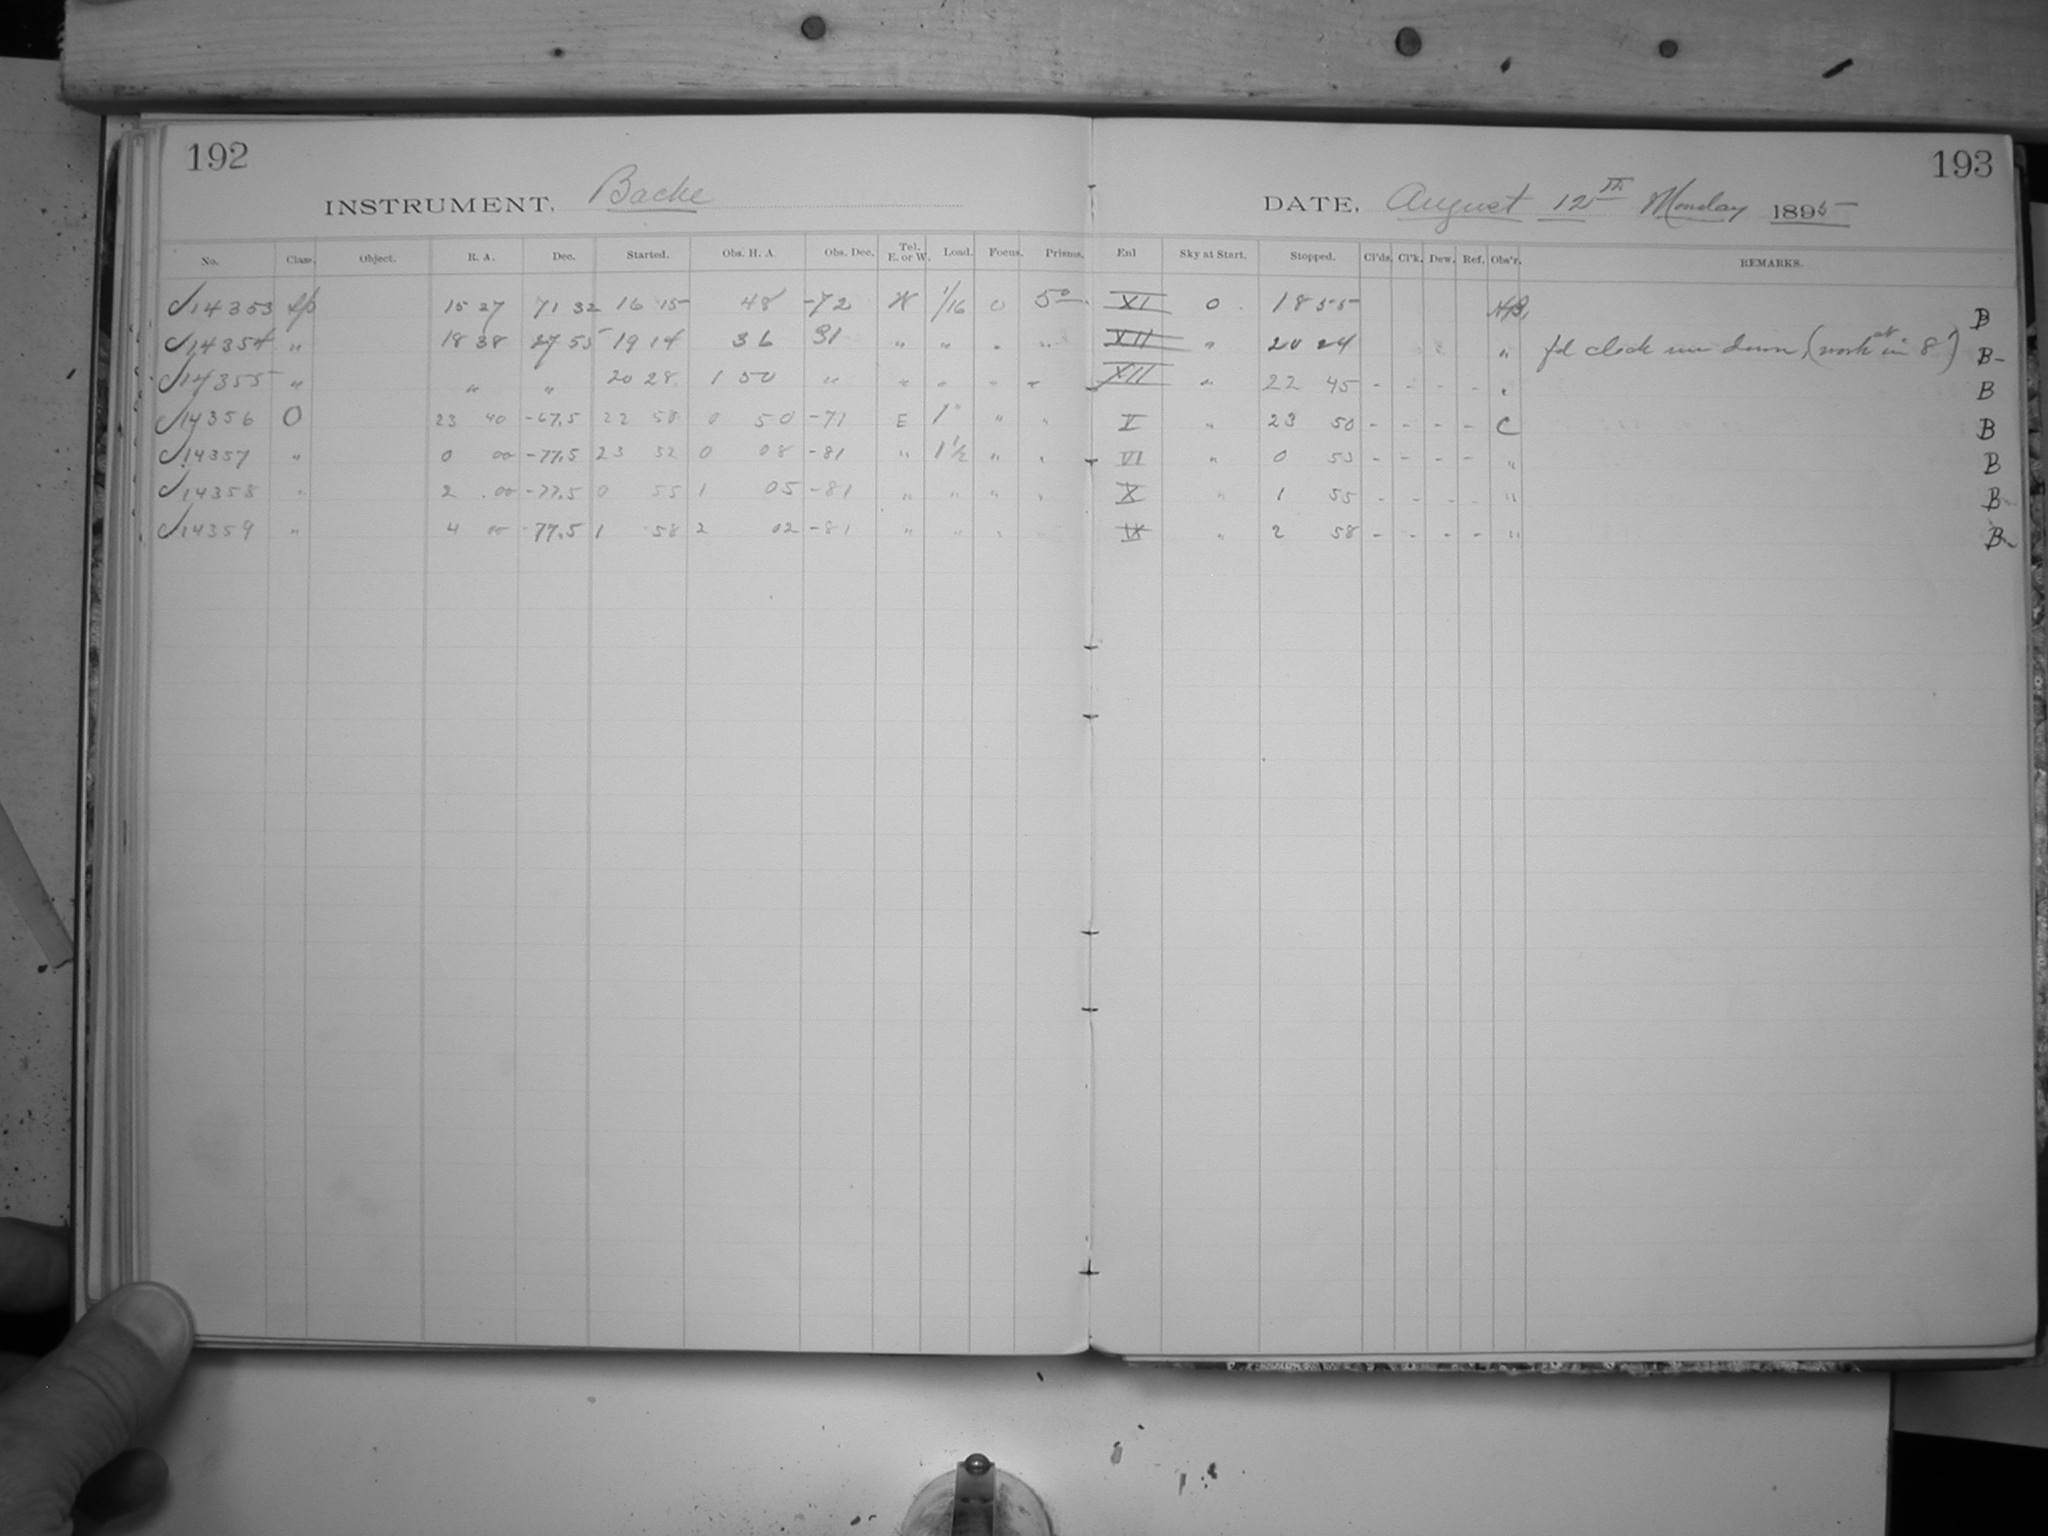 192
INSTRUMENT. Bache
No. Class. Object. R. A. Dec. Started. Obs. H. A. Obs. Dec. Tel. E. or W. Load. Focus. Prisms.
14353 Sp 15 27 71 32 16 15 48 -72 W 1/16 0 50
14354 " 18 38 27 55 19 14 36 31 " " " "
14355 " " " 20 28 1 50 " " " " "
14356 O 23 40 -67.5 22 58 0 50 -71 E 1" " "
14357 " 0 00 -77.5 23 52 0 08 -81 " 1 1/2 " "
14358 " 2 00 -77.5 0 55 1 05 -81 " " " "
14359 " 4 00 -77.5 1 58 2 02 -81 " " "
193
DATE, August 12th Monday 1895
Enl Sky at Start. Stopped. Cl'ds. Cl'k. Dew. Ref. Obs'r. REMARKS.
XI 0 18 55 B
XII " 20 24 " fd clock run down, (work at in 8) B
XII " 22 45 - - - - " B
V " 23 50 - - - - C B
VI " 0 53 - - - - " B
X " 1 55 - - - - " B
IX " 2 58 - - - - " B